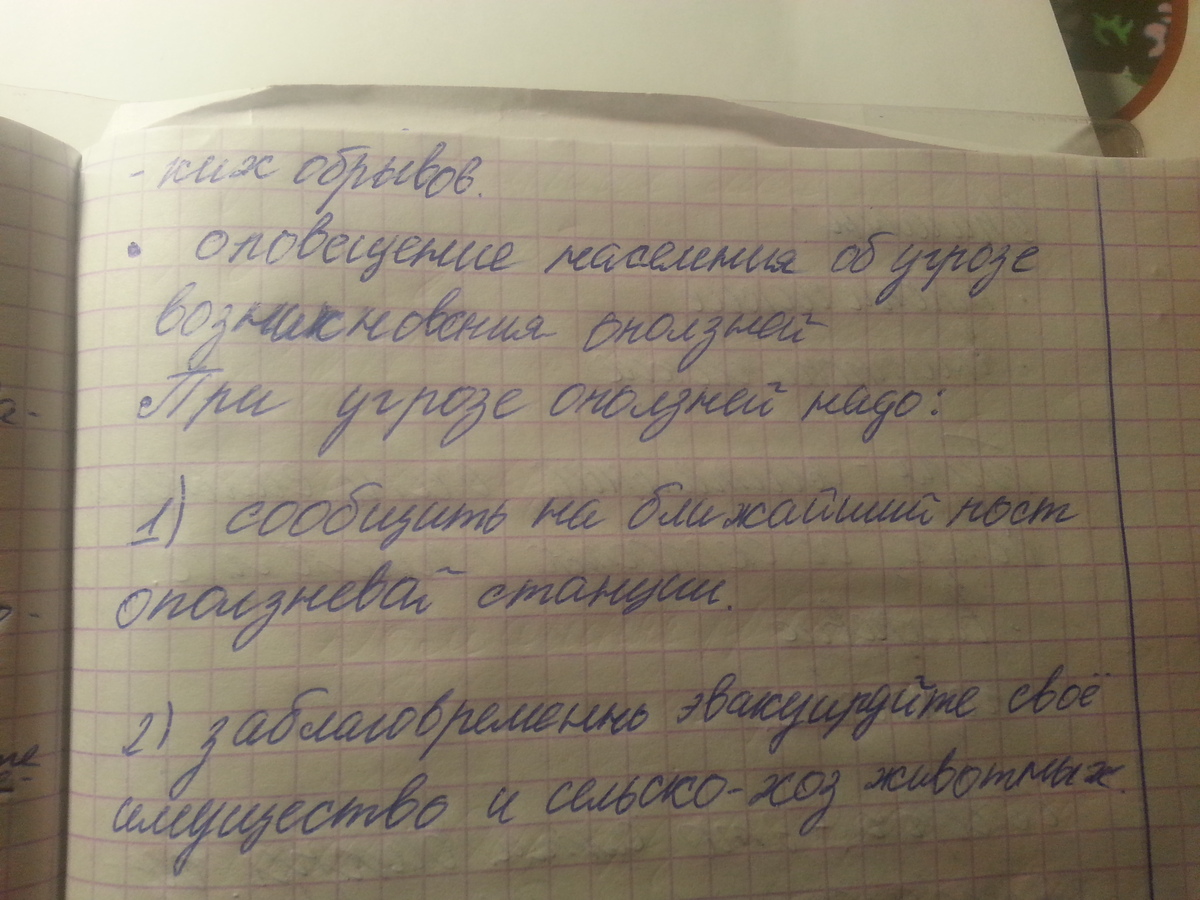 - ких обрывов.
• оповещение населения об угрозе
возникновения оползней
При угрозе оползней надо:
1) сообщить на ближайший пост
оползневай станции.
2) заблаговременнь эвакуируйте своё
имущество и сельско-хоз животных.